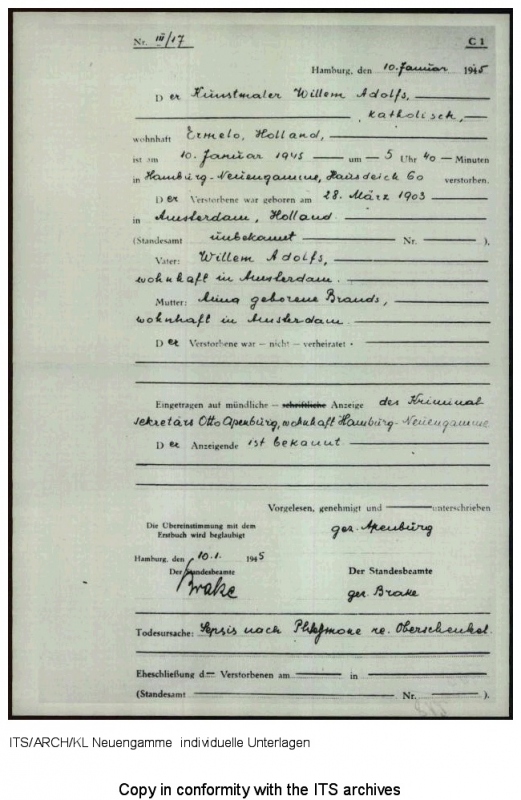 Nr. III/17 C 1
Hamburg, den 10. Januar 1945
D er Kunstmaler Willem Adolfs,
katholisch,
wohnhaft Ermelo, Holland,
ist am 10. Januar 1945 um 5 Uhr 40 Minuten
in Hamburg-Neuengamme, Hausdeich 60 verstorben.
D er Verstorbene war geboren am 28. März 1903
in Amsterdam, Holland
(Standesamt unbekannt Nr. ).
Vater: Willem Adolfs,
wohnhaft in Amsterdam.
Mutter: Anna geborene Brands,
wohnhaft in Amsterdam
D er Verstorbene war – nicht – verheiratet
Eingetragen auf mündliche – schriftliche Anzeige des Kriminal-
sekretärs Otto Apenburg, wohnhaft Hamburg-Neuengamme
D er Anzeigende ist bekannt
Vorgelesen, genehmigt und unterschrieben
gez. Apenburg
Die Übereinstimmung mit dem
Erstbuch wird beglaubigt
Hamburg, den 10.1. 1945
Der Standesbeamte Der Standesbeamte
Brake gez. Brake
Todesursache: Sepsis nach Phlegmone re. Oberschenkel.
Eheschließung d Verstorbenen am in
(Standesamt Nr. ).
ITS/ARCH/KL Neuengamme individuelle Unterlagen
Copy in conformity with the ITS archives